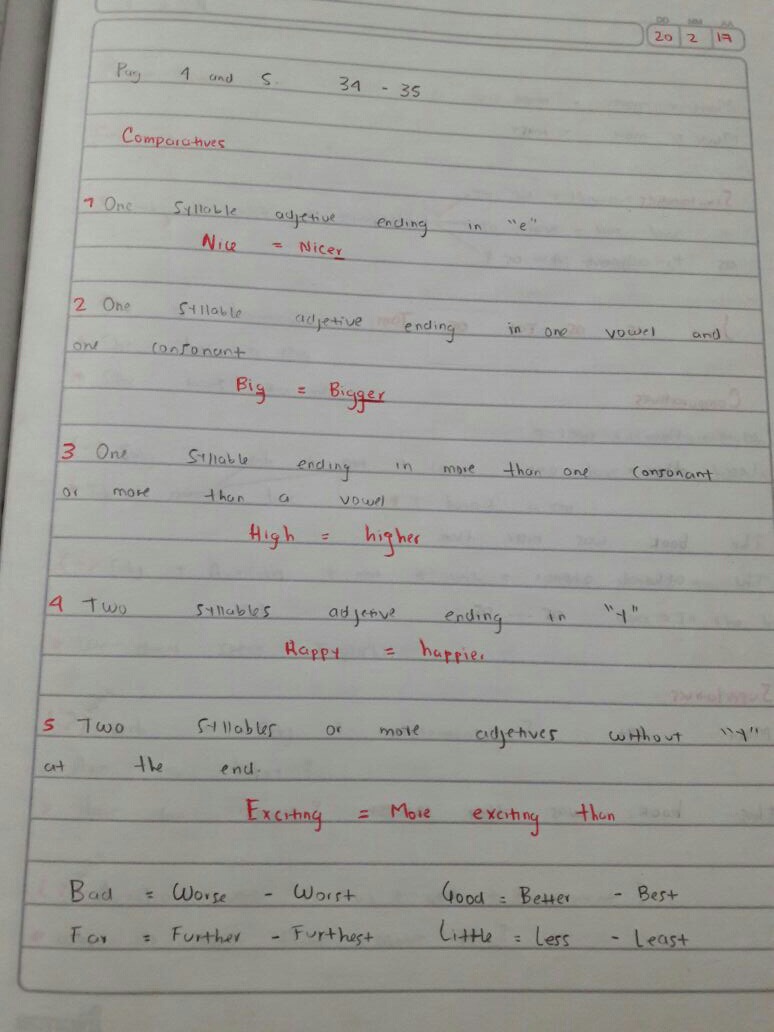 DD MM AA
20 2 17
Pag 4 and 5. 34 - 35
Comparatives
1 One syllable adjetive ending in "e"
Nice = Nicer
2 One syllable adjetive ending in one vowel and
one consonant
Big = Bigger
3 One syllable ending in more than one consonant
or more than a vowel
High = higher
4 Two syllables adjetive ending in "y"
Happy = happier
5 Two syllables or more adjetives without "y"
at the end.
Exciting = More exciting than
Bad = Worse - Worst Good = Better - Best
Far = Further - Furthest Little = Less - Least